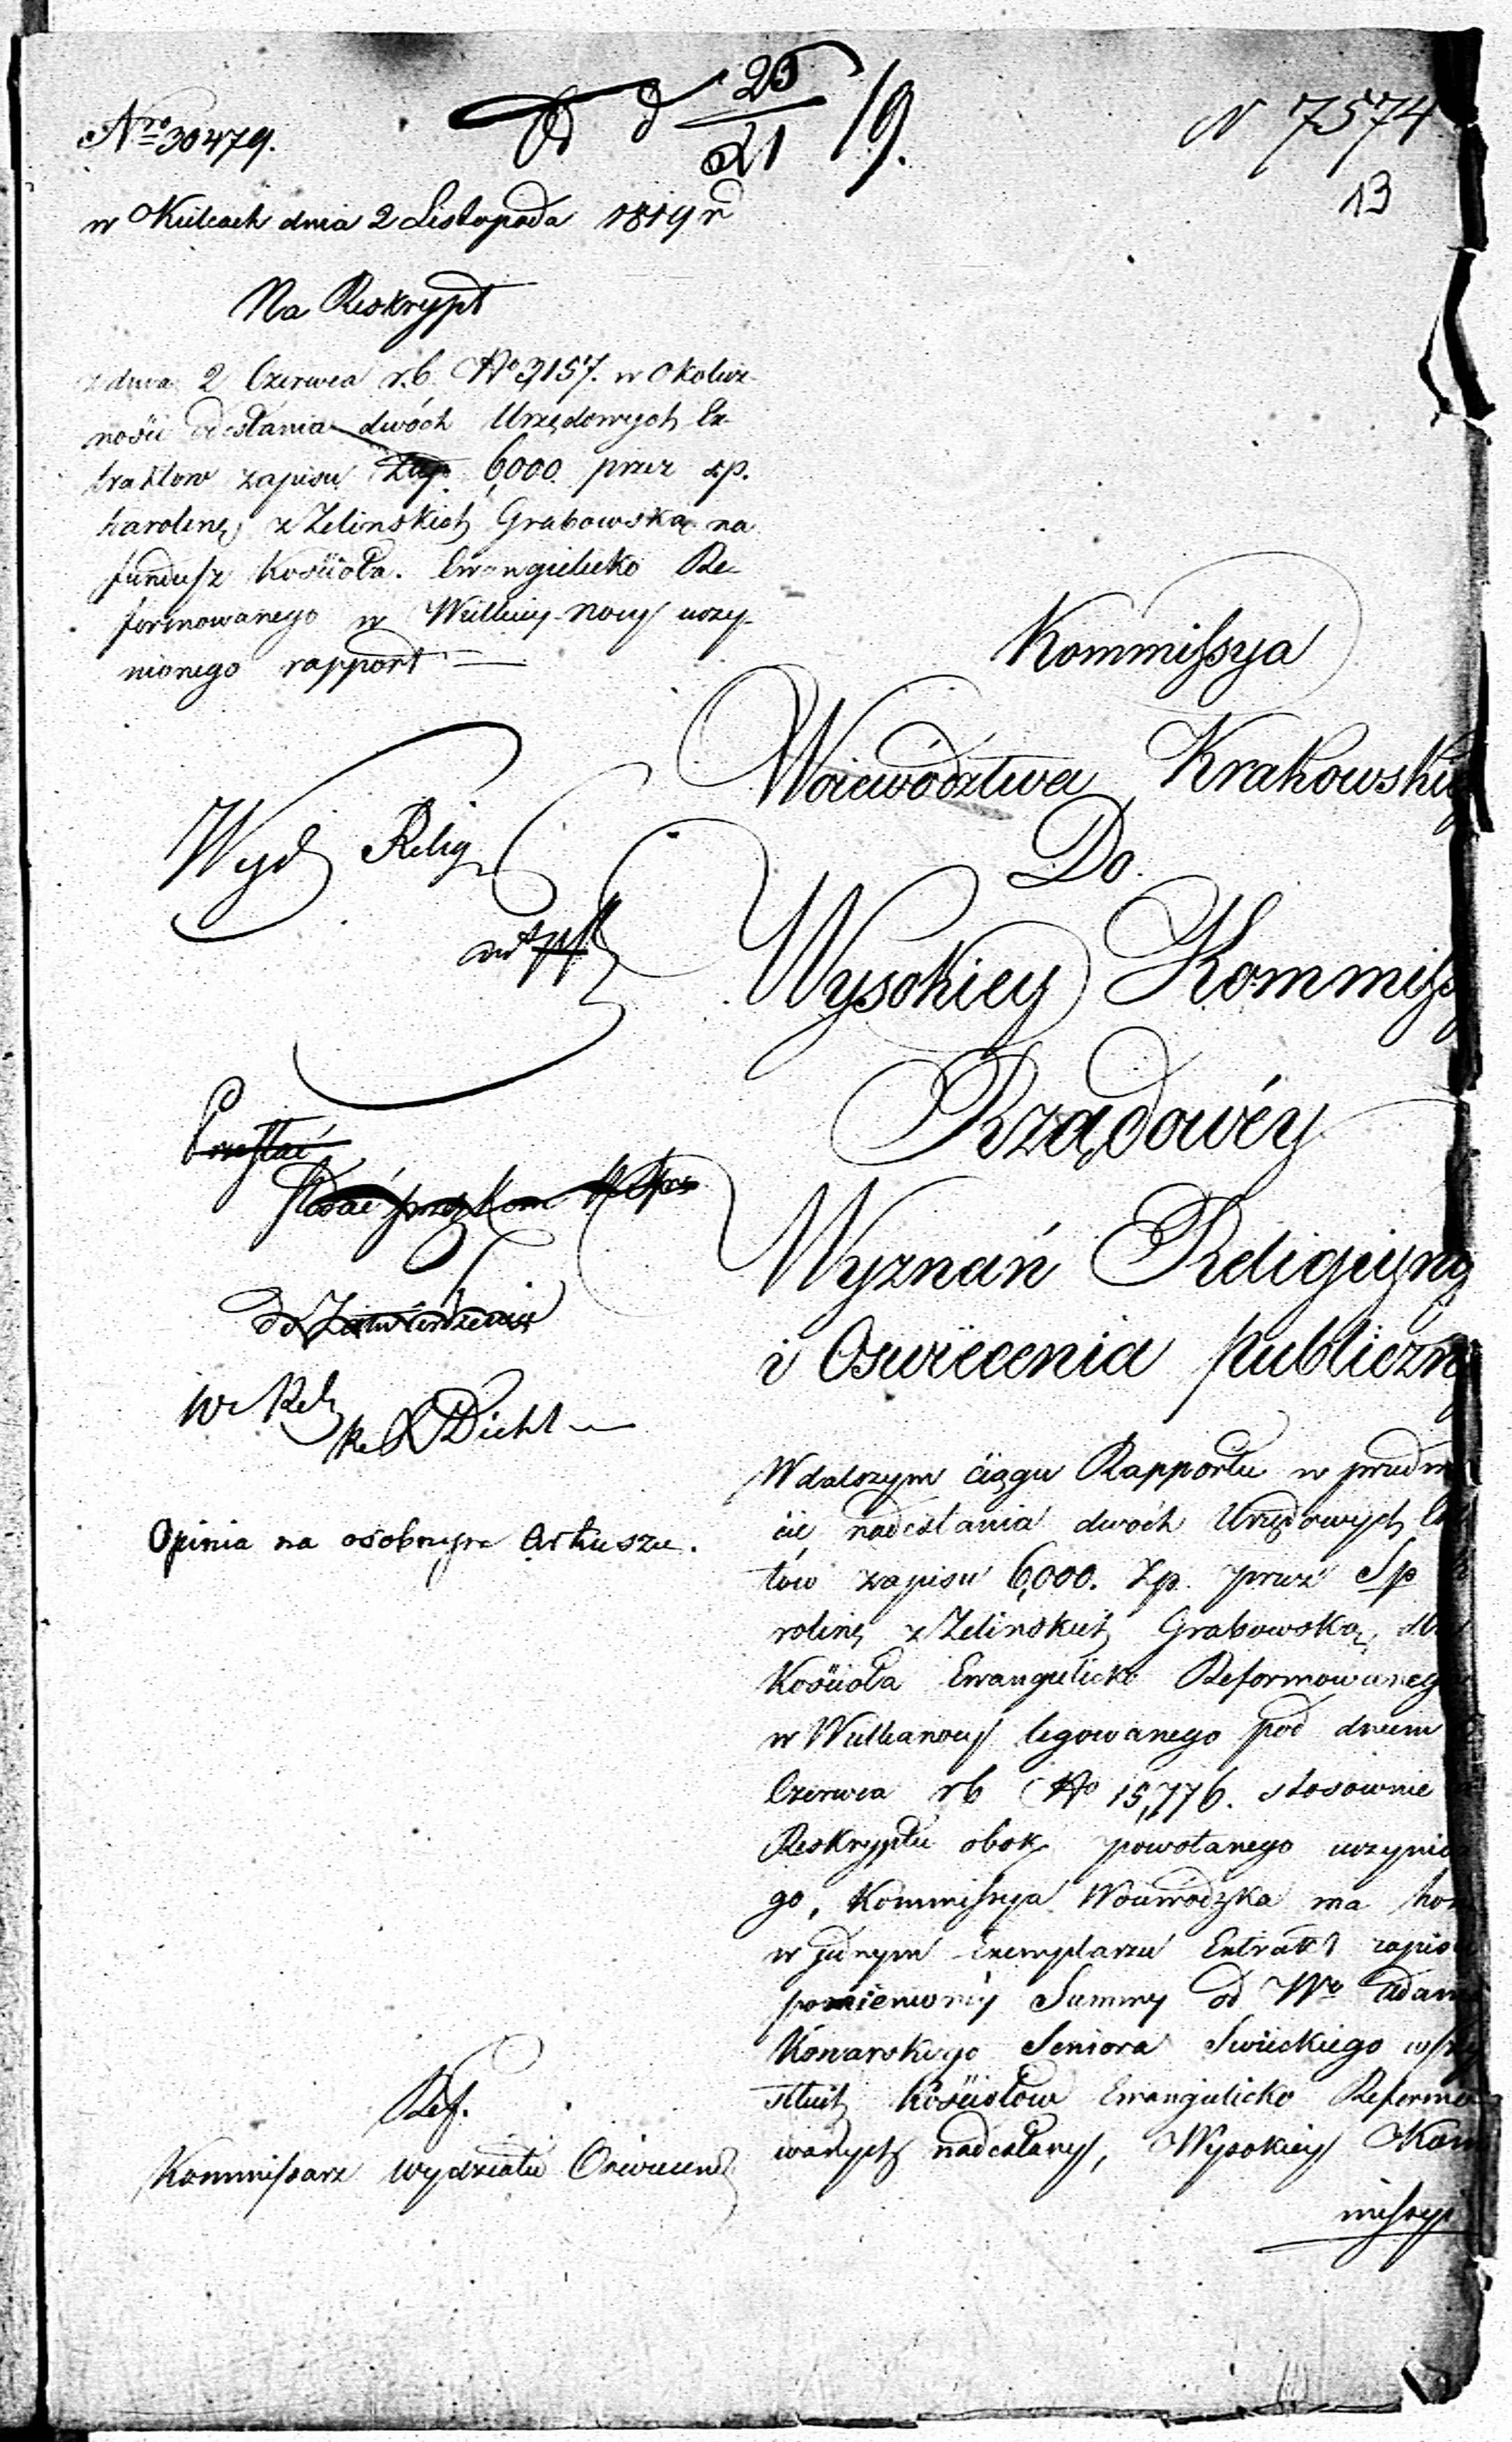 Nro 30479.
d 25/21 19.
N 7574
13
w Kielcach dnia 2 Listopada 1819 r
Na Reskrypt
z dnia 2 Czerwca r.b. No 3,157. w okolicz-
ności odesłania dwóch Urzędowych Ex-
traktow zapisu Złp. 6,000 przez sp.
Karolinę z Zelinskich Grabowską na
fundusz Kościoła. Ewangielicko Re-
formowanego w Wielkiey-Nocy uczy-
nionego rapport
Kommissya
Woiewództwa Krakowskie
Do.
Wysokiey Kommiss
Rządowéy
Wyznań Religiyny
i Oswiecenia publiczn
Wyd Relig
Przesłać
do Zatwierdzenia
W Rel
Diehl
Opinia na osobnym Arkuszu.
W dalszym ciągu Rapportu w przedm
cie nadesłania dwóch Urzędowych Ex
tów zapisu 6,000. Zp. przez Sp
rolinę z Zelinskich Grabowską, dla
Kościoła Ewangelicko Reformowaneg
w Wielkanocy legowanego pod dniem
Czerwca rb No 15,776. stosownie
Reskryptu obok powołanego uczynio
go, Kommissya Woiewódzka ma hon
w jednym Exemplarzu Extrakt zapisu
pomienioney Summy od Wo Adam
Konarskiego Seniora Swieckiego wszy
stkich Kościołów Ewangelicko Reformo
wanych nadesłany, Wysokiey Kom
missyi
Ref.
Kommissarz Wydziału Oswiecenia